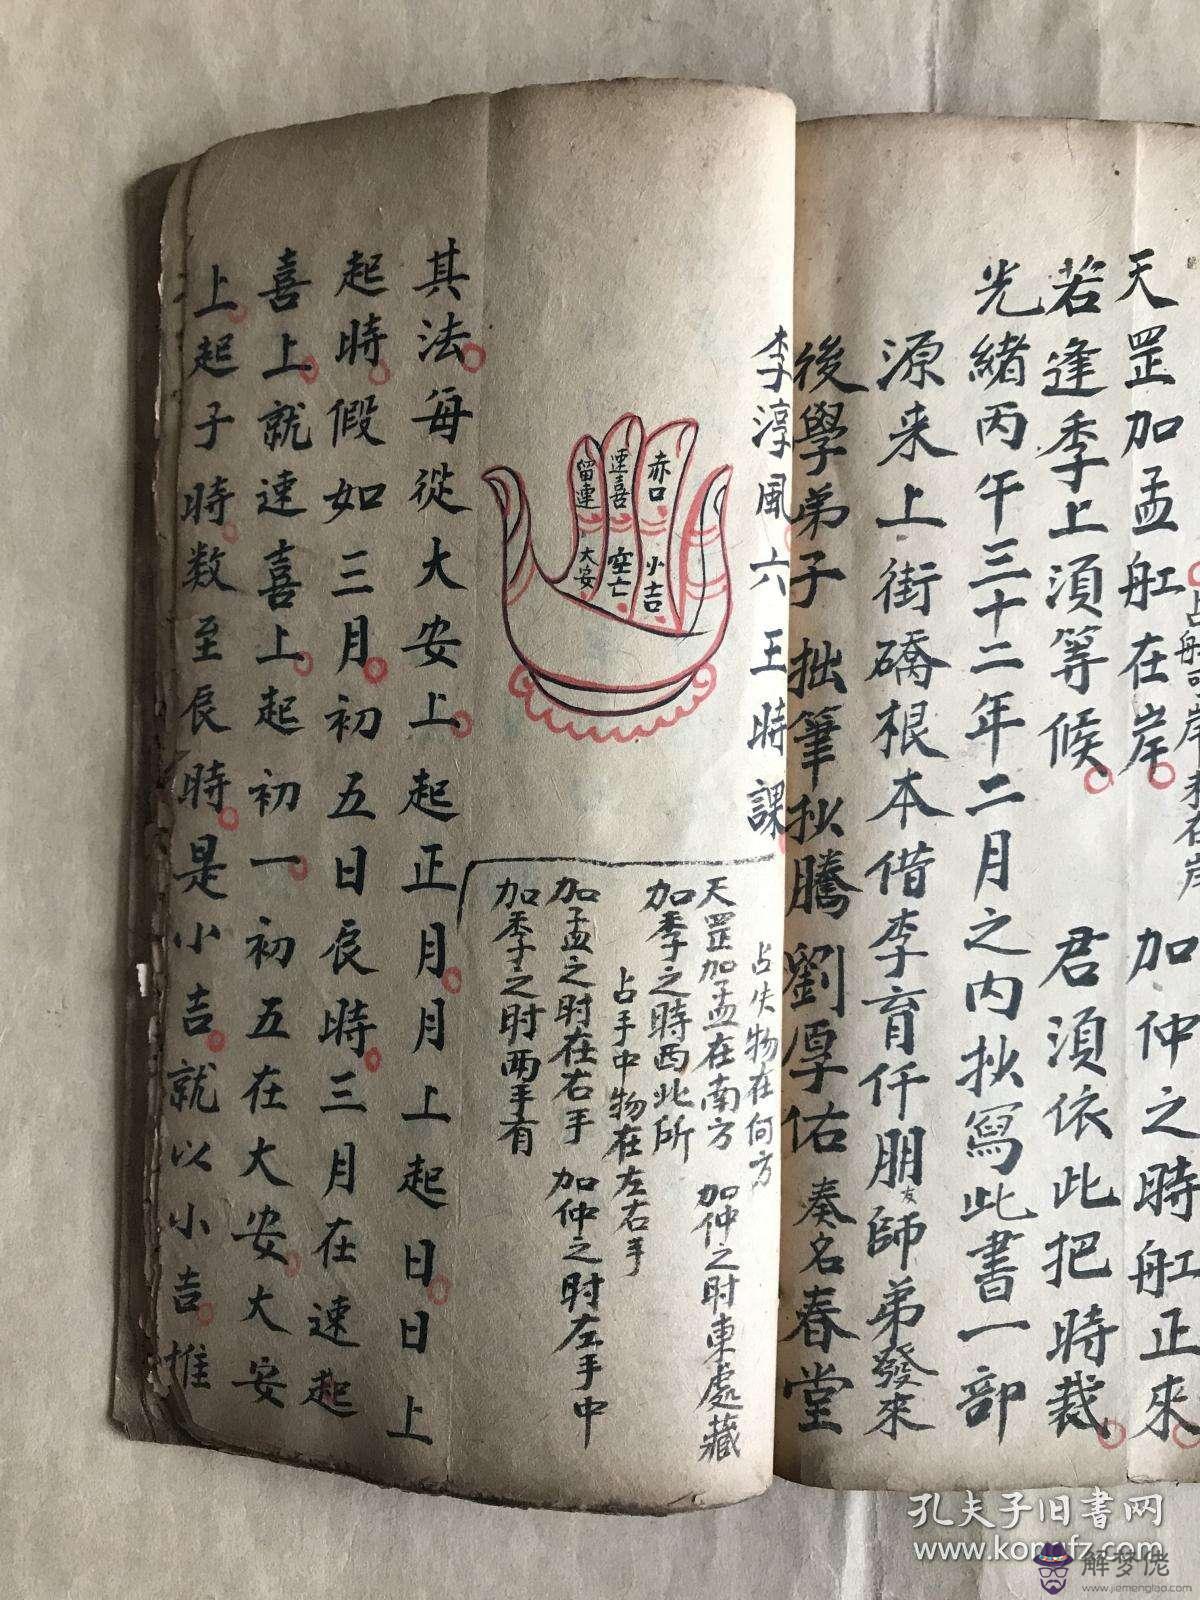 占船可岸未在岸
天罡加孟舡在岸 加仲之時舡正來
若逢季上須等候 君須依此把時裁
光緒丙午三十二年二月之内抄寫此書一部
源来上街礄根本借李育仟朋友師弟發來
後學弟子拙筆抄騰劉厚佑奏名春堂
李淳風六王時課
赤口
速喜
留連
小吉
空亡
大安
占失物在何方
天罡加孟在南方 加仲之时東處藏
加季之時西北所
占手中物在左右手
加孟之时在右手 加仲之时左手中
加季之时两手有
其法每從大安上起正月月上起日日上
起時假如三月初五日辰時三月在速起
喜上就速喜上起初一初五在大安大安
上起子時数至辰時是小吉就以小吉推
孔夫子旧书网
www.kongfz.com
解梦佬
www.jiemenglao.com